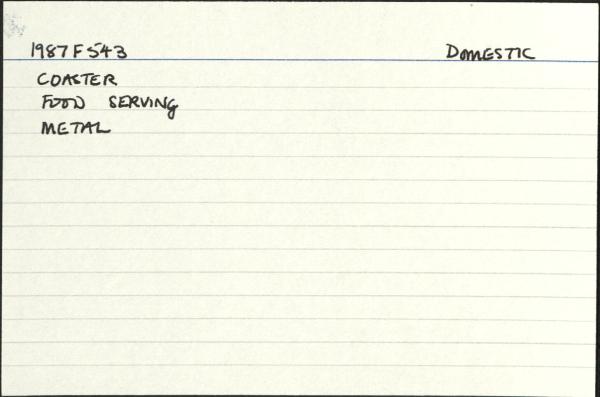 1987 F 543 DOMESTIC
COASTER
FOOD SERVING
METAL